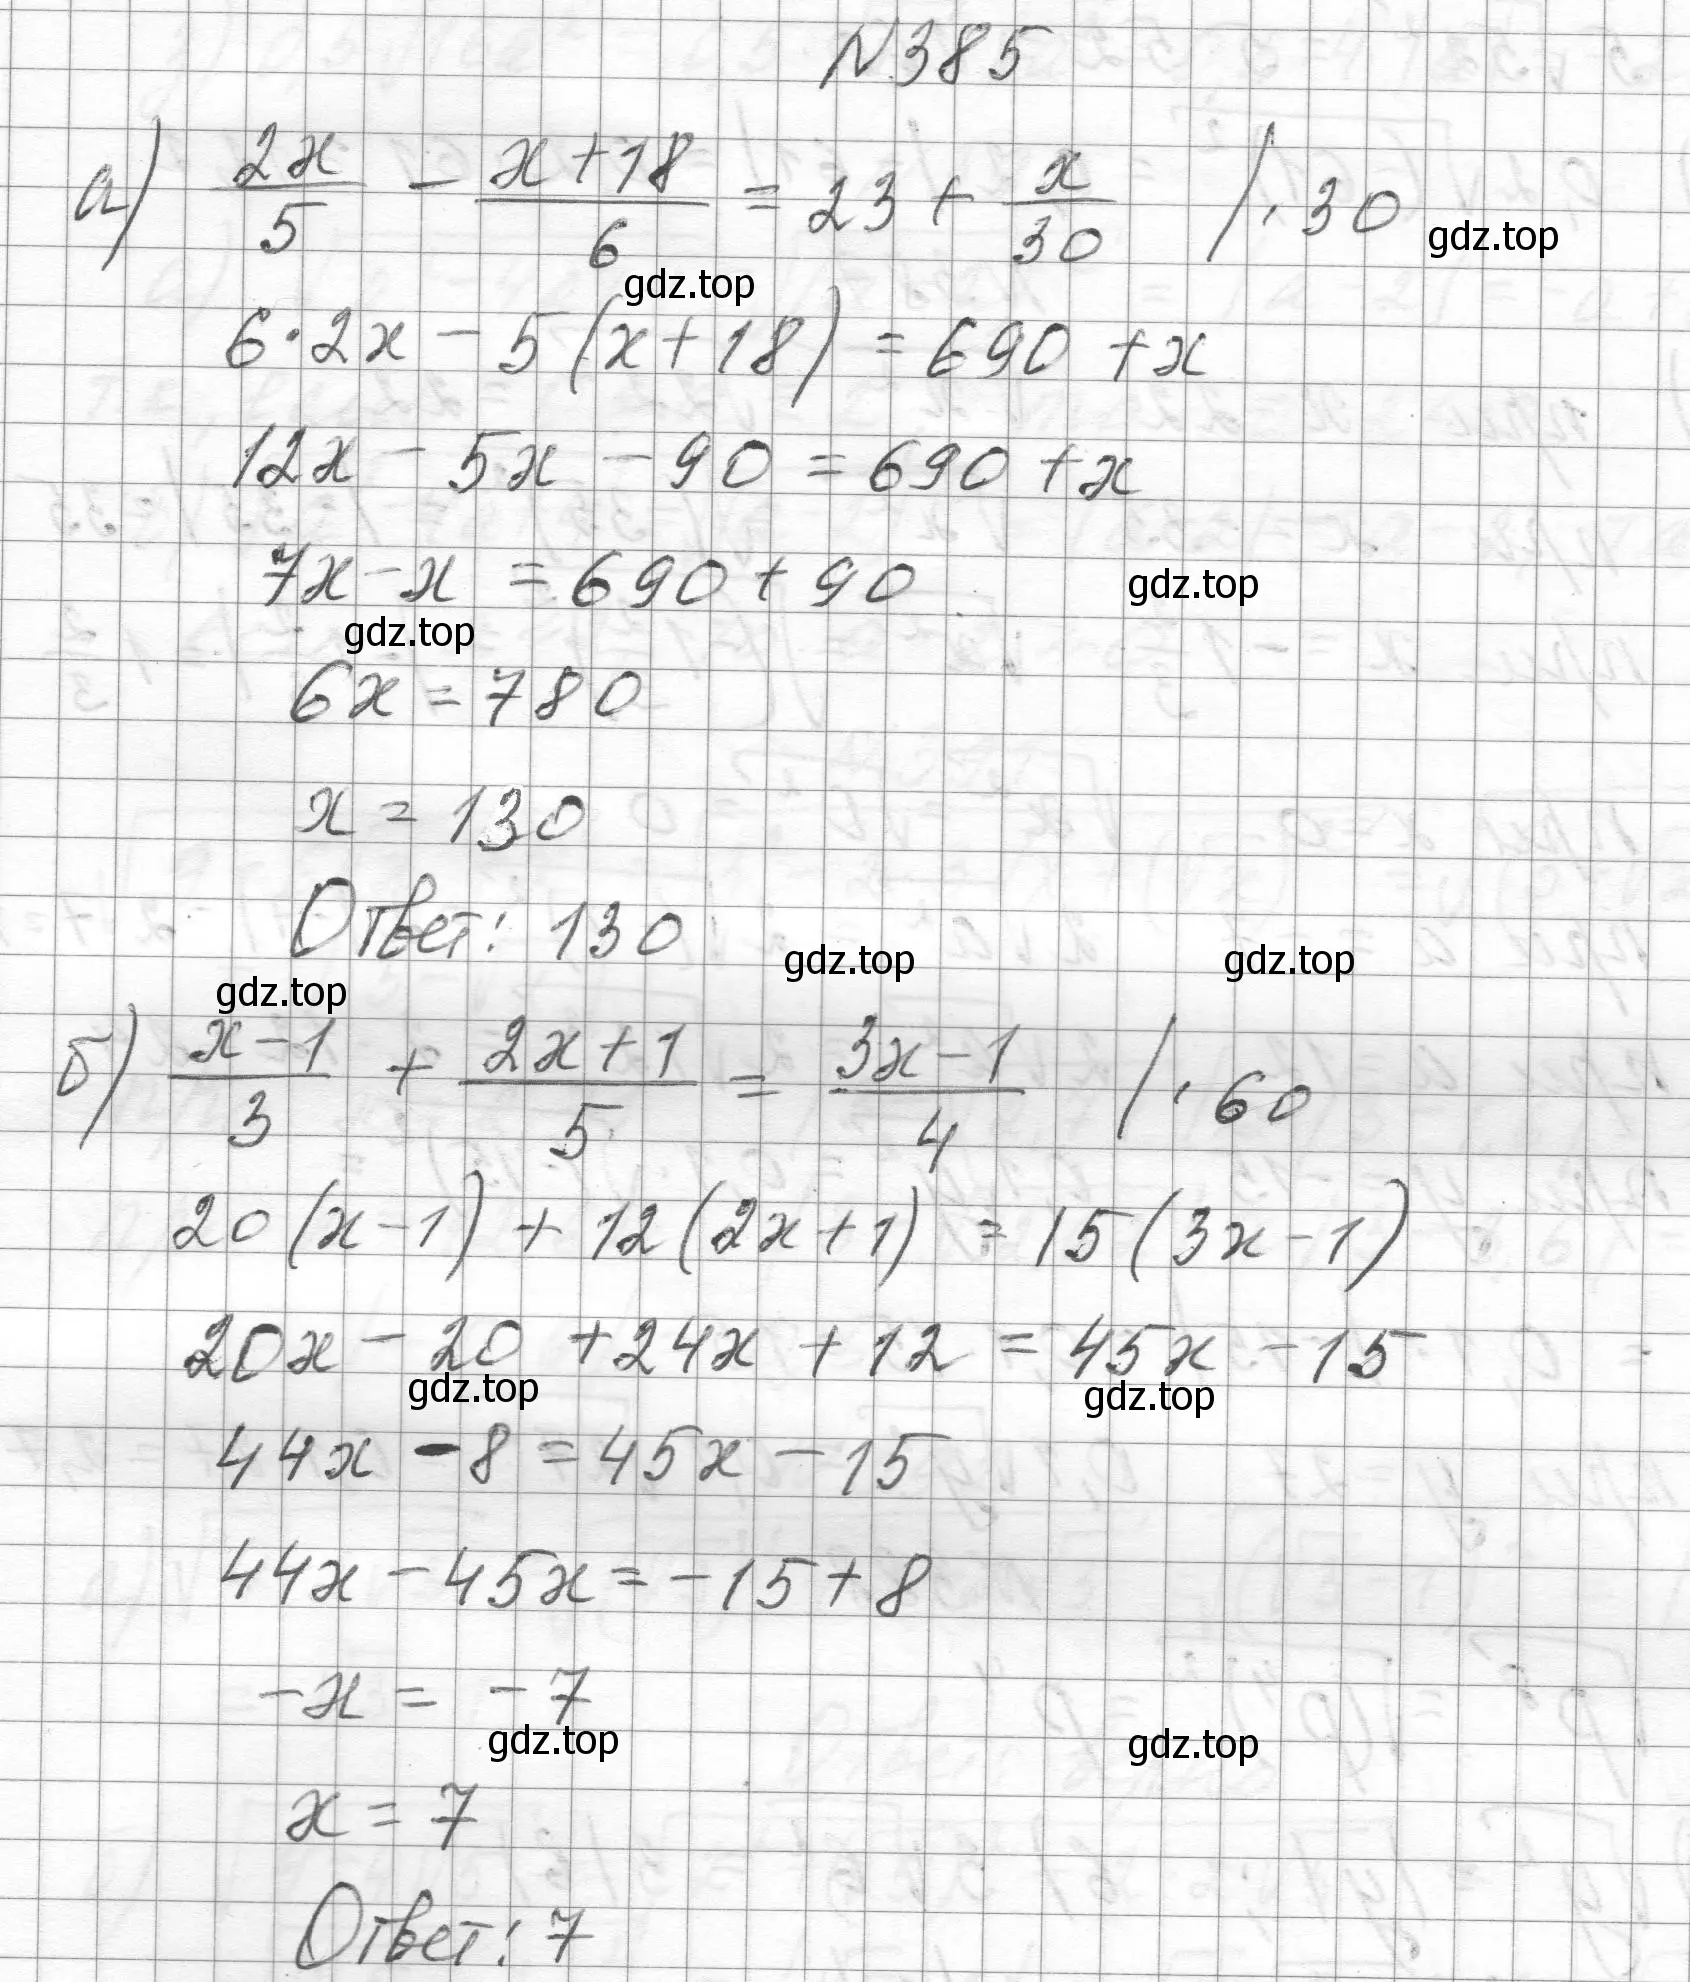 N385
а) 2x/5 - x+18/6 = 23 + x/30 /·30
gdz.top
gdz.top
6·2x - 5(x+18) = 690 + x
12x - 5x - 90 = 690 + x
7x - x = 690 + 90
gdz.top
gdz.top
6x = 780
x = 130
Ответ: 130
gdz.top
gdz.top
gdz.top
б) x-1/3 + 2x+1/5 = 3x-1/4 /·60
20(x-1) + 12(2x+1) = 15(3x-1)
20x - 20 + 24x + 12 = 45x - 15
gdz.top
gdz.top
44x - 8 = 45x - 15
44x - 45x = -15 + 8
-x = -7
gdz.top
gdz.top
x = 7
Ответ: 7